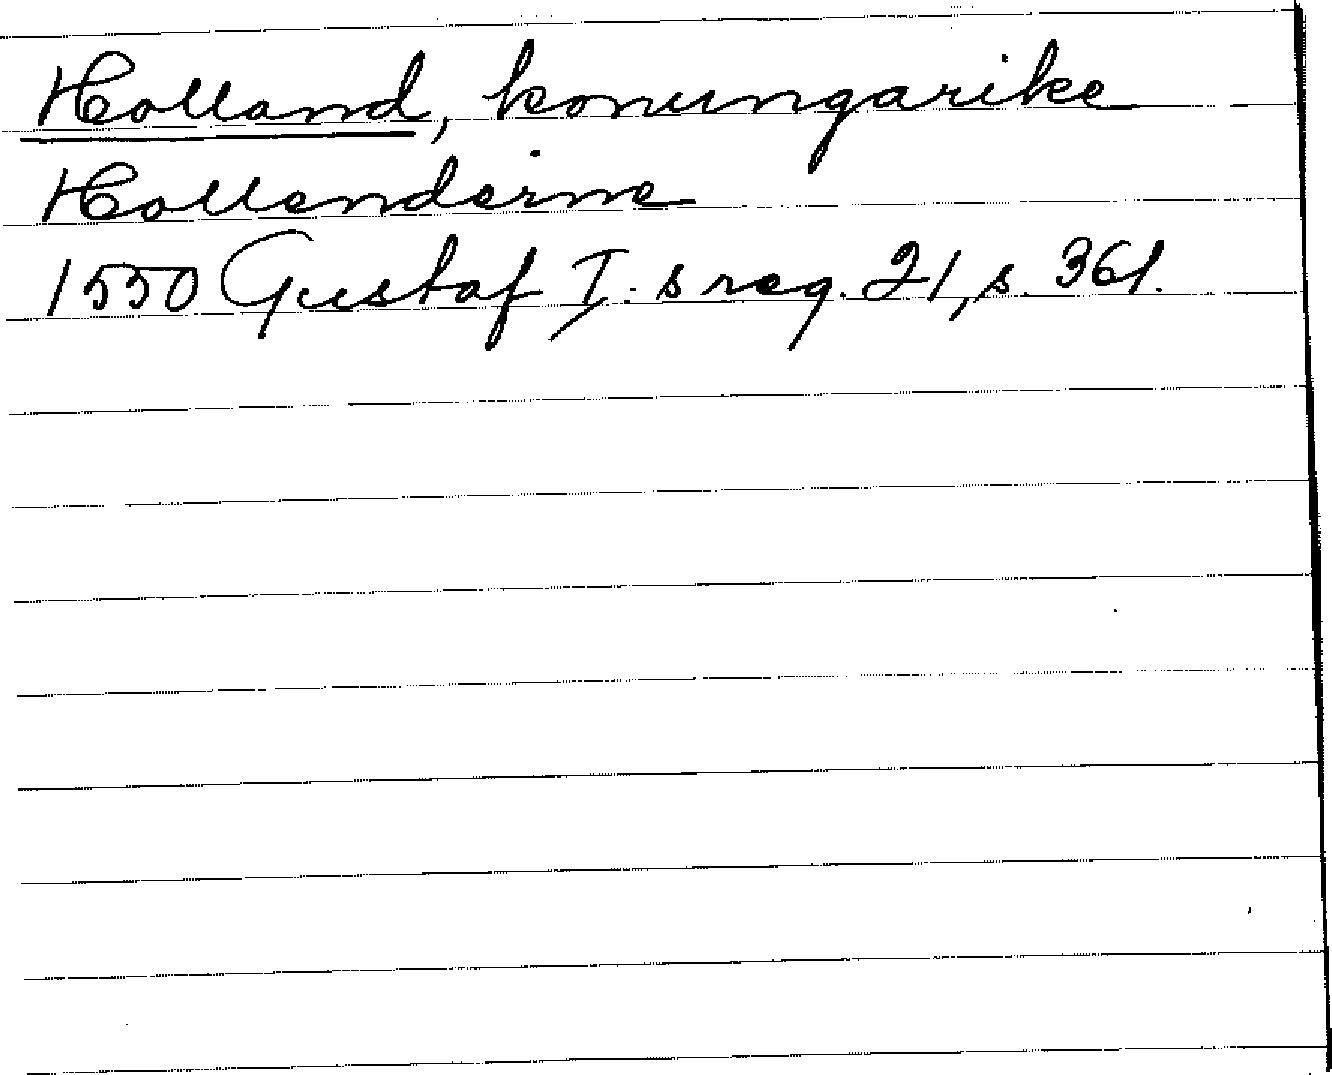 Holland, konungarike
Hollenderne
1550 Gustaf I. s reg. 21, s. 361.